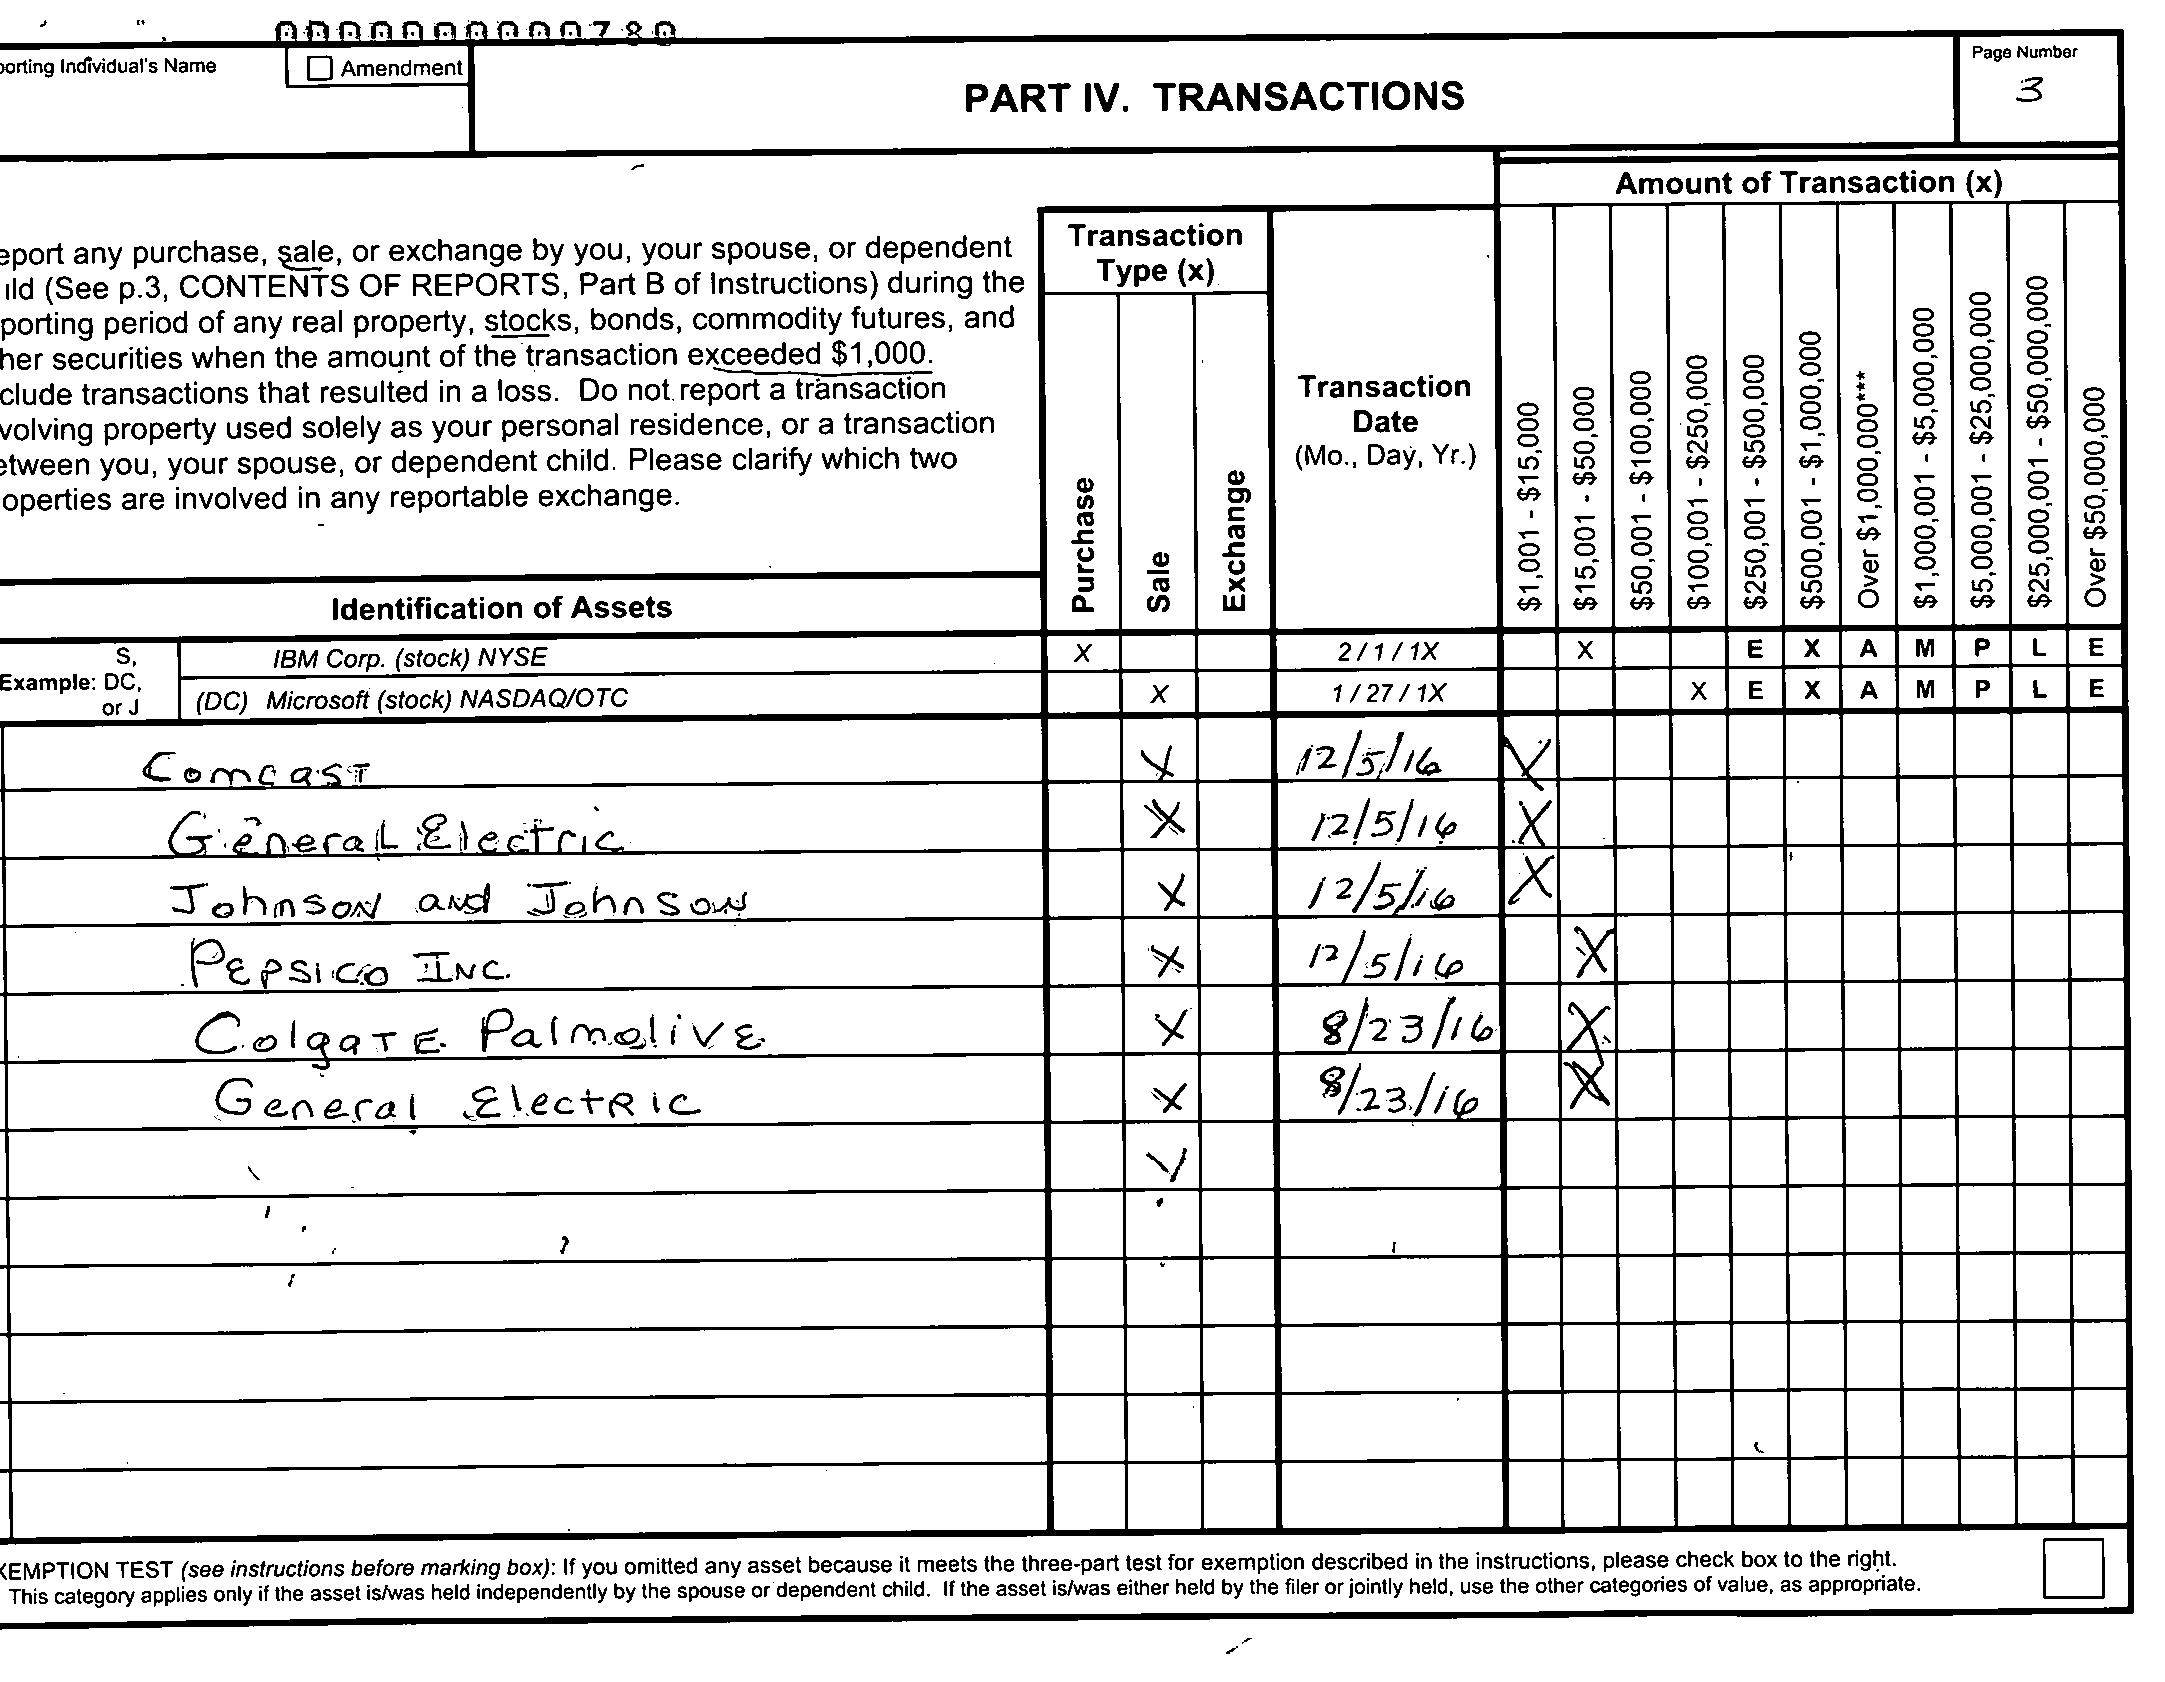 000000000780
porting Individual's Name
Amendment
PART IV. TRANSACTIONS
Page Number
3
Amount of Transaction (x)
eport any purchase, sale, or exchange by you, your spouse, or dependent
ild (See p.3, CONTENTS OF REPORTS, Part B of Instructions) during the
porting period of any real property, stocks, bonds, commodity futures, and
her securities when the amount of the transaction exceeded $1,000.
clude transactions that resulted in a loss. Do not report a transaction
volving property used solely as your personal residence, or a transaction
etween you, your spouse, or dependent child. Please clarify which two
operties are involved in any reportable exchange.
Transaction
Type (x)
Purchase
Sale
Exchange
Transaction
Date
(Mo., Day, Yr.)
$1,001 - $15,000
$15,001 - $50,000
$50,001 - $100,000
$100,001 - $250,000
$250,001 - $500,000
$500,001 - $1,000,000
Over $1,000,000***
$1,000,001 - $5,000,000
$5,000,001 - $25,000,000
$25,000,001 - $50,000,000
Over $50,000,000
Identification of Assets
Example:
S,
DC,
or J
IBM Corp. (stock) NYSE X 2/1/1X X E X A M P L E
(DC) Microsoft (stock) NASDAQ/OTC X 1/27/1X X E X A M P L E
Comcast X 12/5/16 X
General Electric X 12/5/16 X
Johnson and Johnson X 12/5/16 X
Pepsico Inc. X 12/5/16 X
Colgate Palmolive X 8/23/16 X
General Electric X 8/23/16 X
XEMPTION TEST (see instructions before marking box): If you omitted any asset because it meets the three-part test for exemption described in the instructions, please check box to the right.
This category applies only if the asset is/was held independently by the spouse or dependent child. If the asset is/was either held by the filer or jointly held, use the other categories of value, as appropriate.